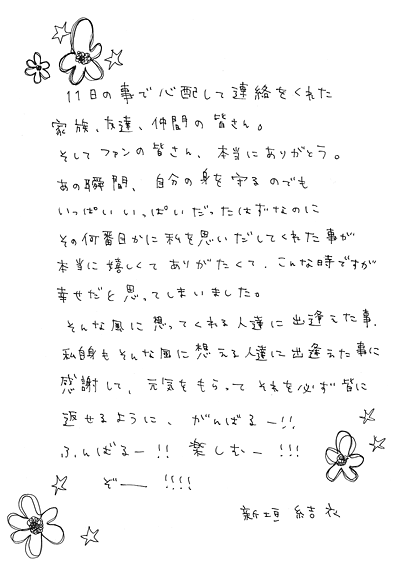 11日の事で心配して連絡をくれた
家族、友達、仲間の皆さん。
そしてファンの皆さん、本当にありがとう。
あの瞬間、自分の身を守るのでも
いっぱいいっぱいだったはずなのに
その何番目かに私を思いだしてくれた事が
本当に嬉しくてありがたくて、こんな時ですが
幸せだと思ってしまいました。
そんな風に想ってくれる人達に出逢えた事、
私自身もそんな風に想える人達に出逢えた事に
感謝して、元気をもらってそれを必ず皆に
返せるように、がんばるー!!
ふんばるー!! 楽しむー!!!
ぞー !!!!
新垣 結衣